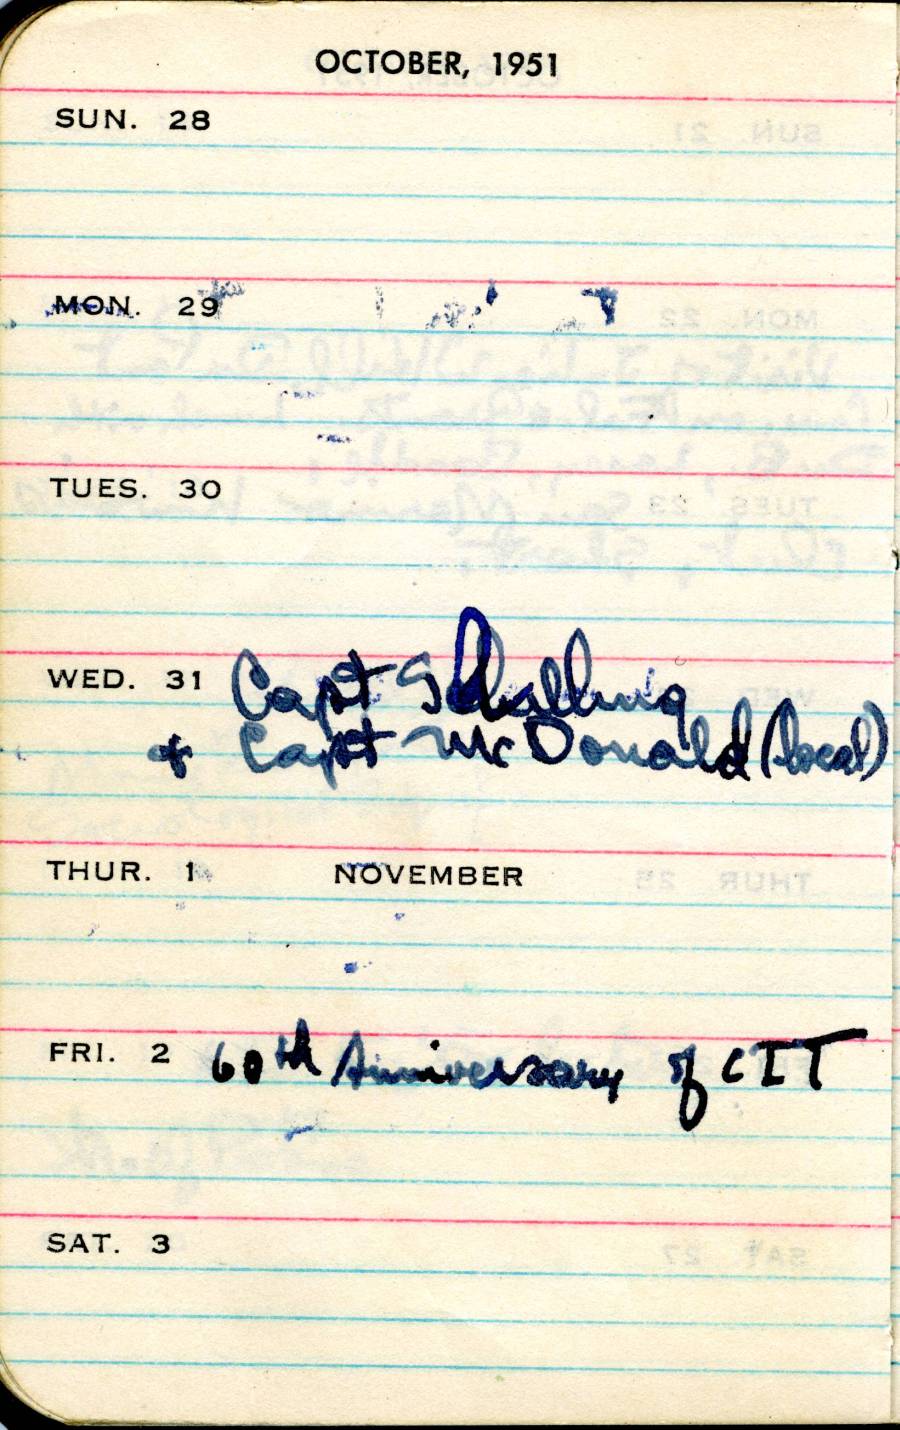 OCTOBER, 1951
SUN. 28
MON. 29
TUES. 30
WED. 31 Capt Schalling
& Capt McDonald (local)
THUR. 1 NOVEMBER
FRI. 2 60th Anniversary of CIT
SAT. 3